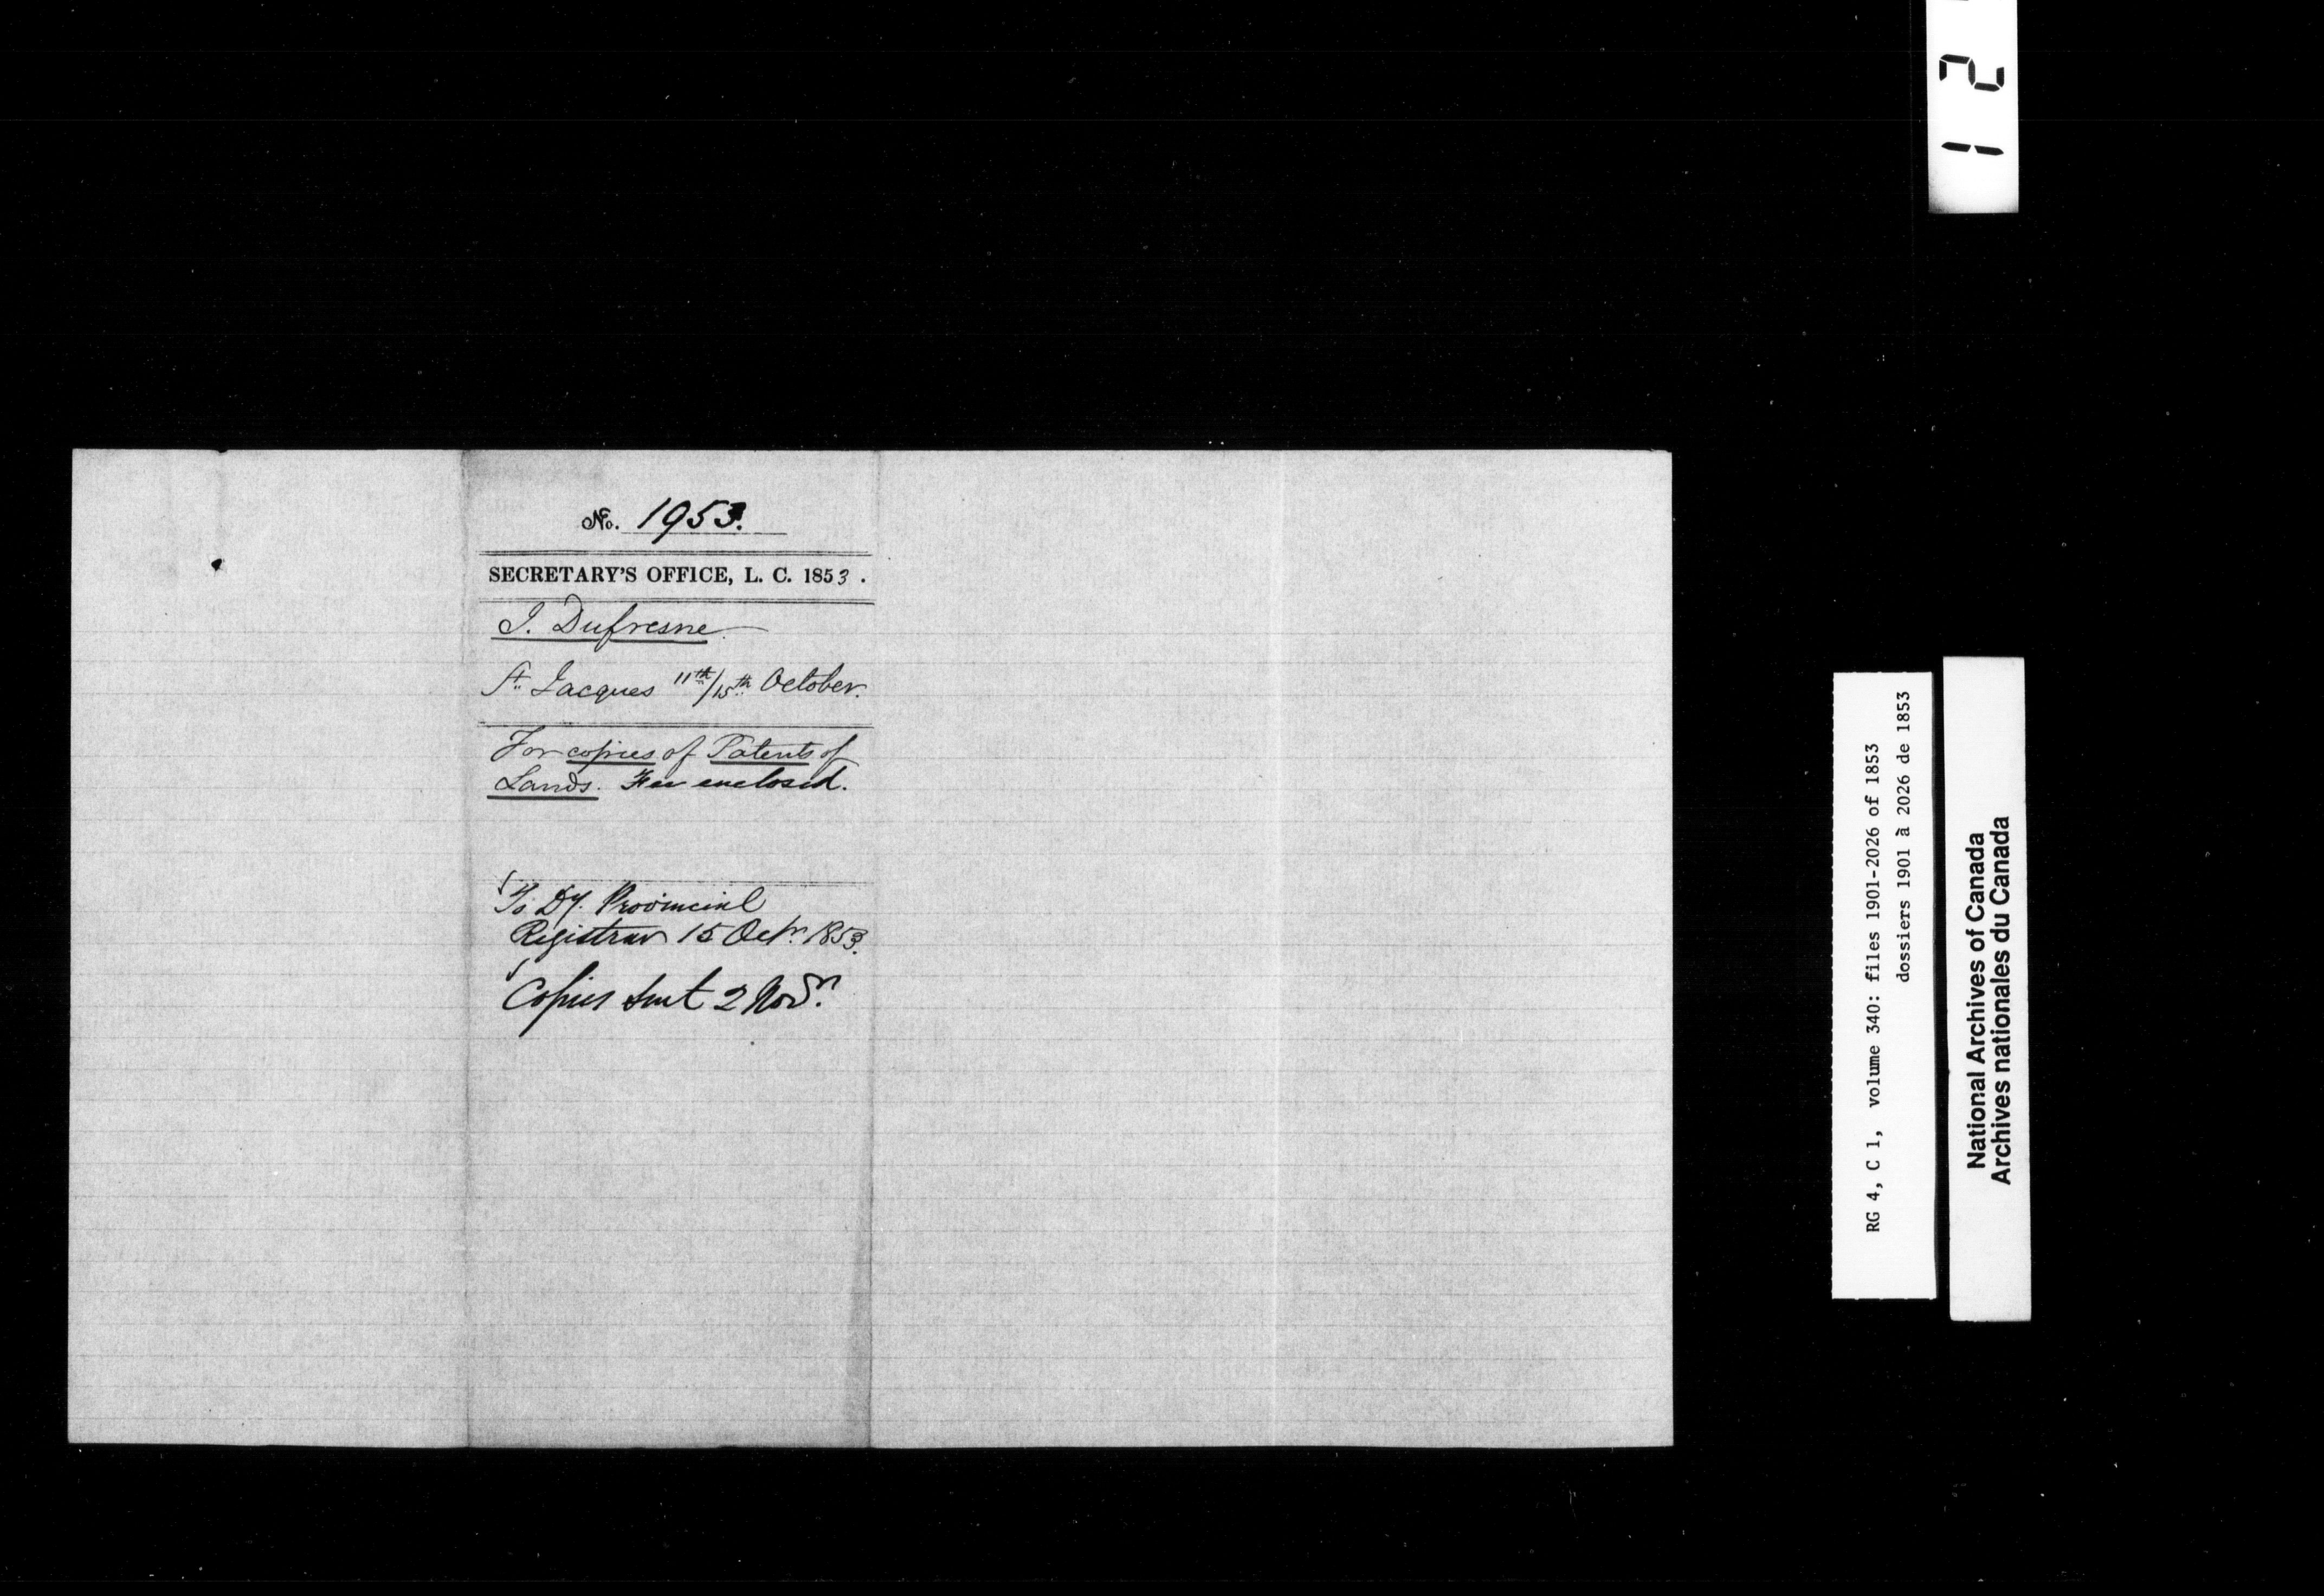 No. 1953.
SECRETARY'S OFFICE, L. C. 1853.
J. Dufresne
St. Jacques 11th/15th October.
For copies of Patents of
Lands. Fee enclosed.
To Dy. Provincial
Registrar 15 Octr. 1853.
Copies sent 2 Novr.
12
RG 4, C 1, volume 340: files 1901-2026 of 1853
dossiers 1901 à 2026 de 1853
National Archives of Canada
Archives nationales du Canada